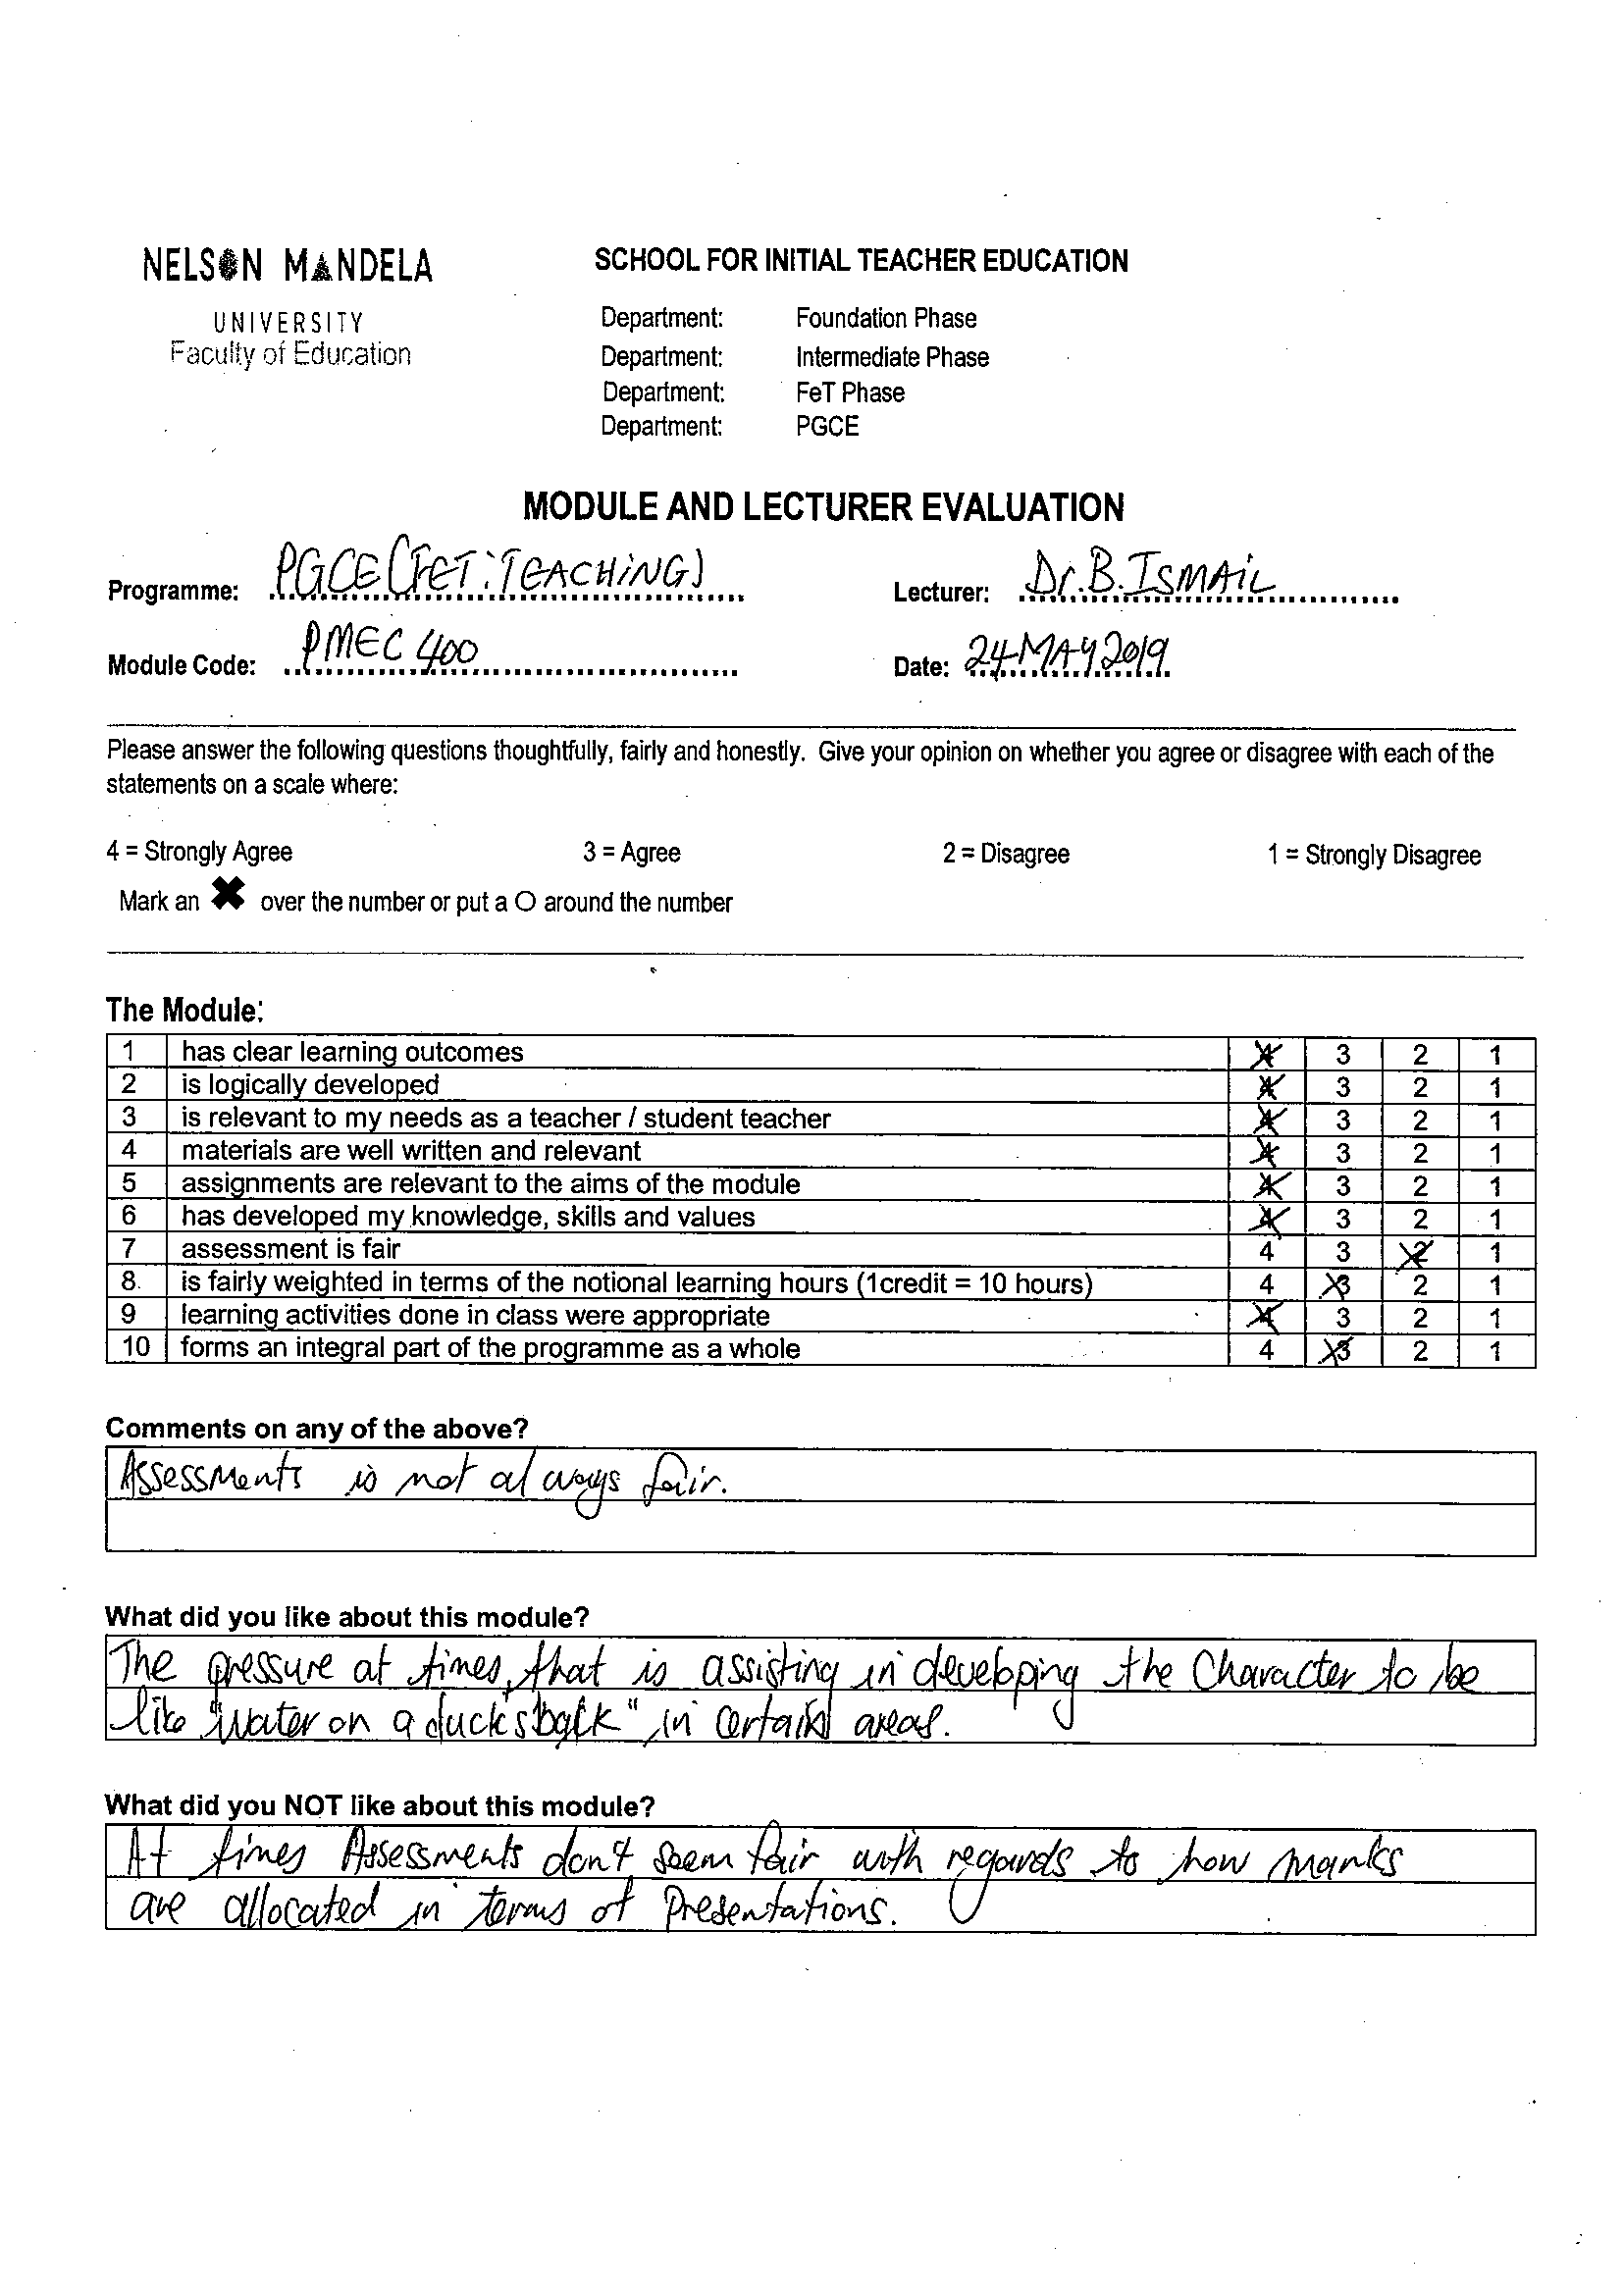 NELSON MANDELA
UNIVERSITY
Faculty of Education
SCHOOL FOR INITIAL TEACHER EDUCATION
Department: Foundation Phase
Department: Intermediate Phase
Department: FeT Phase
Department: PGCE
MODULE AND LECTURER EVALUATION
Programme: PGCE (FET: TEACHING)
Lecturer: Dr. B. ISMAIL
Module Code: PMEC 400
Date: 24 MAY 2019
Please answer the following questions thoughtfully, fairly and honestly. Give your opinion on whether you agree or disagree with each of the
statements on a scale where:
4 = Strongly Agree 3 = Agree 2 = Disagree 1 = Strongly Disagree
Mark an ✖ over the number or put a O around the number
The Module:
1 has clear learning outcomes 4 3 2 1
2 is logically developed 4 3 2 1
3 is relevant to my needs as a teacher / student teacher 4 3 2 1
4 materials are well written and relevant 4 3 2 1
5 assignments are relevant to the aims of the module 4 3 2 1
6 has developed my knowledge, skills and values 4 3 2 1
7 assessment is fair 4 3 2 1
8. is fairly weighted in terms of the notional learning hours (1credit = 10 hours) 4 3 2 1
9 learning activities done in class were appropriate 4 3 2 1
10 forms an integral part of the programme as a whole 4 3 2 1
Comments on any of the above?
Assessments is not always fair.
What did you like about this module?
The pressure at times, that is assisting in developing the Character to be
like "water on a duck's back" in certain areas.
What did you NOT like about this module?
At times Assessments don't seem fair with regards to how marks
are allocated in terms of Presentations.